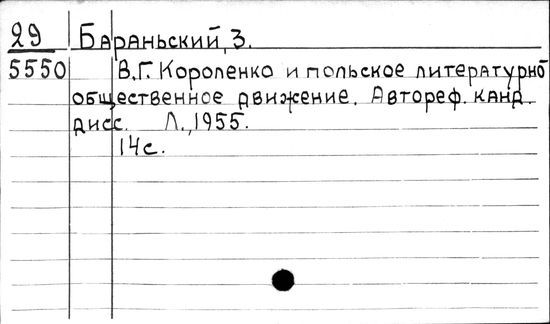 29 Бараньский, З.
5550 В.Г. Короленко и польское литературно
общественное движение. Автореф. канд.
дисс. Л., 1955.
14с.